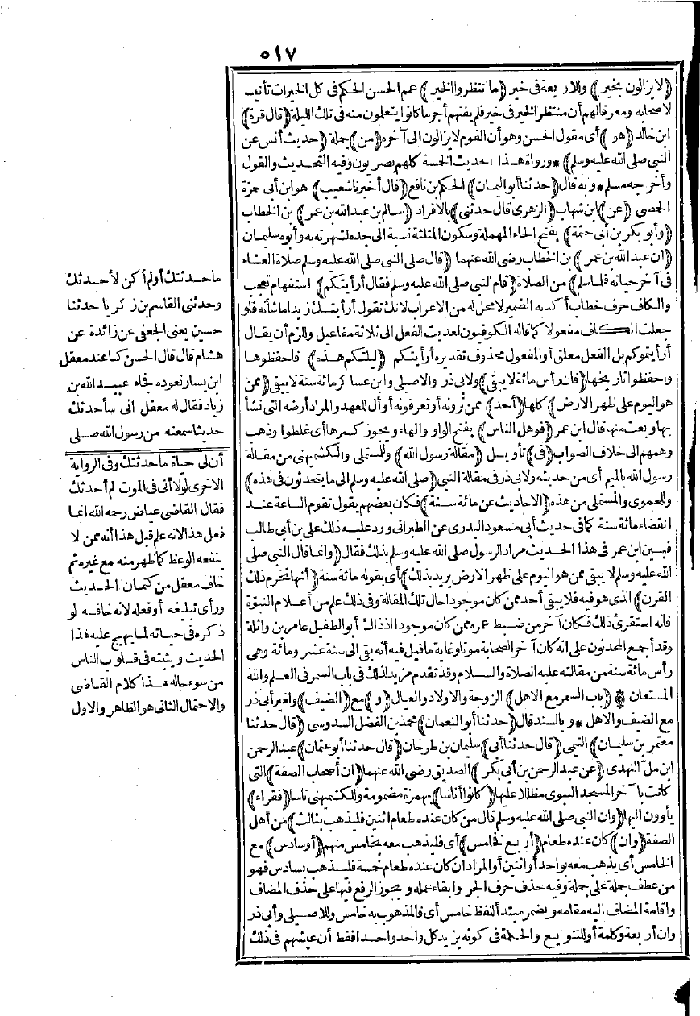 ٥١٧
لا يزالون بخير) والاربعة في خير (ما انتظروا الخير) عمم الحسن الحكم في كل الخيرات تأنيسا
لاصحابه ومعرفا لهم أن منتظر الخير في خير فلم يفتهم أجر ما كانوا يتعلمون منه في تلك الليلة (قال قرة)
ابن خالد (هو) أي مقول الحسن وهو أن القوم لا يزالون الى آخره (من) جملة (حديث أنس عن
النبي صلى الله عليه وسلم) * ورواة هذا الحديث الخمسة كلهم بصريون وفيه التحديث والقول
وأخرجه مسلم * وبه قال (حدثنا أبو اليمان) الحكم بن نافع (قال أخبرنا شعيب) هو ابن أبي حمزة
الحمصي (عن) ابن شهاب (الزهري قال حدثني) بالافراد (سالم بن عبد الله بن عمر) بن الخطاب
(وأبو بكر بن أبي حثمة) بفتح الحاء المهملة وسكون المثلثة نسبة الى جده لشهرته به وأبوه سليمان
(ان عبد الله بن عمر) بن الخطاب رضي الله عنهما (قال صلى النبي صلى الله عليه وسلم صلاة العشاء
في آخر حياته فلما سلم) من الصلاة (قام النبي صلى الله عليه وسلم فقال أرأيتكم) استفهام تعجب
والكاف حرف خطاب أكد به الضمير لا محل له من الاعراب لانك تقول أرأيتك زيدا ما شأنه فلو
جعلت الكاف مفعولا كما قاله الكوفيون لعديت الفعل الى ثلاثة مفاعيل وللزم أن يقال
أرأيتموكم بل الفعل معلق أو المفعول محذوف تقديره أرأيتكم (ليلتكم هذه) فاحفظوها
واحفظوا تاريخها (فان رأس مائة لا يبقى) ولابي ذر والاصيلي وابن عساكر مائة سنة لا يبقى (ممن
هو اليوم على ظهر الارض) كلها (أحد) ممن ترونه أو تعرفونه أو أل للعهد والمراد أرضه التي نشأ
بها وبعث منها قال ابن عمر (فوهل الناس) بفتح الواو والهاء ويجوز كسرها أي غلطوا وذهب
وهمهم الى خلاف الصواب (في) تأويل (مقالة رسول الله) وللمستملي والكشميهني من مقالة
رسول الله بالميم أي من حديثه ولابي ذر في مقالة النبي (صلى الله عليه وسلم الى ما يتحدثون في هذه)
وللحموي والمستملي من هذه (الاحاديث عن مائة سنة) فكان بعضهم يقول تقوم الساعة عند
انقضاء مائة سنة كما في حديث أبي مسعود البدري عند الطبراني ورد عليه ذلك علي بن أبي طالب
فبين ابن عمر في هذا الحديث مراد الرسول صلى الله عليه وسلم بذلك فقال (وانما قال النبي صلى
الله عليه وسلم لا يبقى ممن هو اليوم على ظهر الارض يريد بذلك) أي بقوله مائة سنة (أنها تخرم ذلك
القرن) الذي هو فيه فلا يبقى أحد ممن كان موجودا حال تلك المقالة وفي ذلك علم من أعلام النبوة
فانه استقرئ ذلك فكان آخر من ضبط عمره ممن كان موجودا اذ ذاك أبو الطفيل عامر بن واثلة
وقد أجمع المحدثون على انه كان آخر الصحابة موتا وغاية ما قيل فيه أنه بقي الى سنة عشر ومائة وهي
رأس مائة سنة من مقالته عليه الصلاة والسلام وقد تقدم مزيد لذلك في باب السمر في العلم والله
المستعان * (باب السمر مع الاهل) الزوجة والاولاد والعيال (و) مع (الضيف) ولغير أبي ذر
مع الضيف والاهل * وبالسند قال (حدثنا أبو النعمان) محمد بن الفضل السدوسي (قال حدثنا
معتمر بن سليمان) التيمي (قال حدثنا أبي) سليمان بن طرخان (قال حدثنا أبو عثمان) عبد الرحمن
ابن مل النهدي (عن عبد الرحمن بن أبي بكر) الصديق رضي الله عنهما (ان أصحاب الصفة) التي
كانت بآخر المسجد النبوي مظللا عليها (كانوا أناسا) بهمزة مضمومة وللكشميهني ناسا (فقراء)
يأوون اليها (وان النبي صلى الله عليه وسلم قال من كان عنده طعام اثنين فليذهب بثالث) من أهل
الصفة (وان) كان عنده طعام (أربع فخامس) أي فليذهب معه بخامس منهم (أو سادس) مع
الخامس أي يذهب معه بواحد أو اثنين أو المراد ان كان عنده طعام خمسة فليذهب بسادس فهو
من عطف جملة على جملة وفيه حذف حرف الجر وابقاء عمله ويجوز الرفع فيهما على حذف المضاف
واقامة المضاف اليه مقامه ويضمر مبتدأ للفظ خامس أي فالمذهوب به خامس وللاصيلي وأبي ذر
وان أربعة وكلمة أو للتنويع والحكمة في كونه يزيد كل واحد واحدا فقط أن عيشهم في ذلك
ما حدثتك أو لم أكن لأحدثك
وحدثني القاسم بن زكريا حدثنا
حسين يعني الجعفي عن زائدة عن
هشام قال قال الحسن كنا عند معقل
ابن يسار نعوده فجاء عبيد الله بن
زياد فقال له معقل اني سأحدثك
حديثا سمعته من رسول الله صلى
أن لي حياة ما حدثتك وفي الرواية
الاخرى لولا أني في الموت لم أحدثك
فقال القاضي عياض رحمه الله انما
فعل هذا لانه علم قبل هذا أنه ممن لا
ينفعه الوعظ كما ظهر منه مع غيره ثم
خاف معقل من كتمان الحديث
ورأى تبليغه أو فعله لانه خافه لو
ذكره في حياته لما يهيج عليه هذا
الحديث ويثبته في قلوب الناس
من سوء حاله هذا كلام القاضي
والاحتمال الثاني هو الظاهر والاول